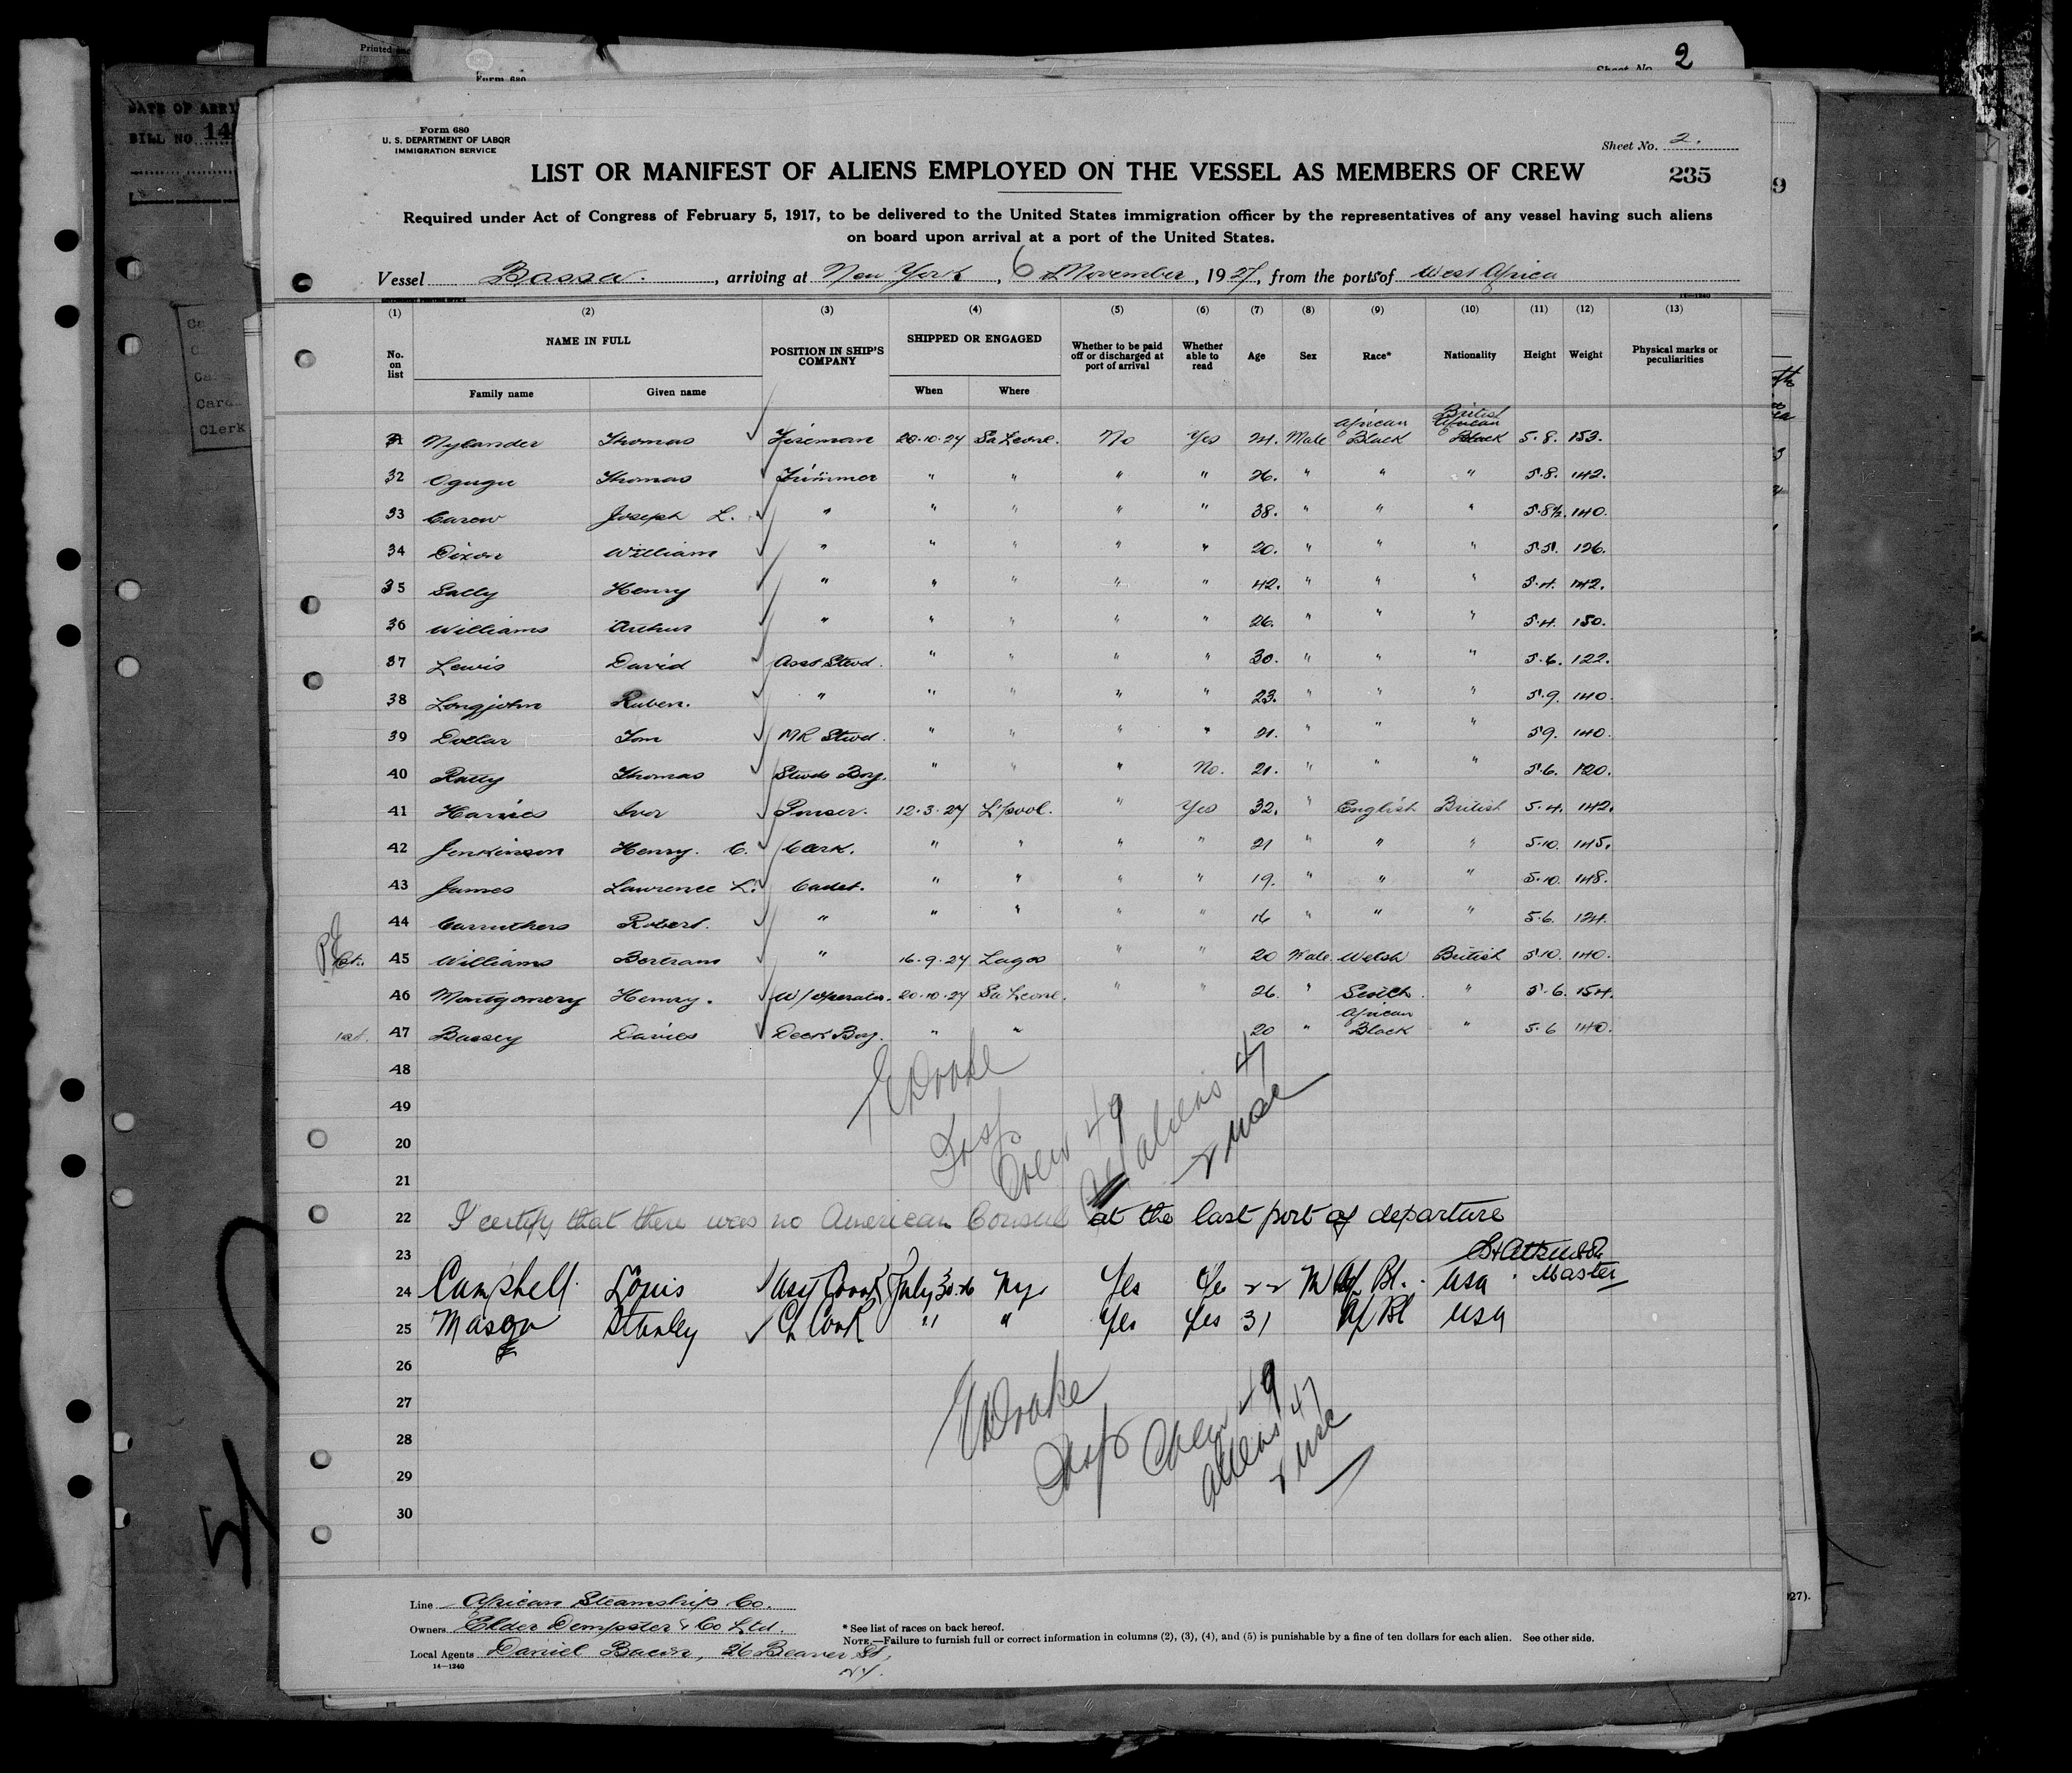 Printed
Form 680
Sheet No. 2
DATE OF ARRI
BILL NO. 14
Form 680
U. S. DEPARTMENT OF LABOR
IMMIGRATION SERVICE
Sheet No. 2.
LIST OR MANIFEST OF ALIENS EMPLOYED ON THE VESSEL AS MEMBERS OF CREW
235
Required under Act of Congress of February 5, 1917, to be delivered to the United States immigration officer by the representatives of any vessel having such aliens
on board upon arrival at a port of the United States.
Vessel Bassa. , arriving at New York , 6 November , 1927, from the ports of West Africa
(1) (2) (3) (4) (5) (6) (7) (8) (9) (10) (11) (12) (13)
No. on list NAME IN FULL POSITION IN SHIP'S COMPANY SHIPPED OR ENGAGED Whether to be paid off or discharged at port of arrival Whether able to read Age Sex Race* Nationality Height Weight Physical marks or peculiarities
Family name Given name When Where
Nylander Thomas Fireman 20.10.27 Sa Leone. No Yes 24. Male African Black British 5.8. 153.
32 Ogugu Thomas Trimmer " " " " 26. " " " 5.8. 142.
33 Carew Joseph L. " " " " " 38. " " " 5.8½. 140.
34 Dixon William " " " " " 20. " " " 5.5. 126.
35 Sally Henry " " " " " 42. " " " 5.4. 142.
36 Williams Arthur " " " " " 26. " " " 5.4. 150.
37 Lewis David Asst Stwd. " " " " 30. " " " 5.6. 122.
38 Longjohn Ruben. " " " " " 23. " " " 5.9. 140.
39 Dollar Tom MR Stwd. " " " " 21. " " " 5.9. 140.
40 Ratty Thomas Stwds Boy. " " " No. 21. " " " 5.6. 120.
41 Harries Ivor Purser. 12.3.27 L'pool. " Yes 32. " English British 5.4. 142.
42 Jenkinson Henry. C. Clerk. " " " " 21 " " " 5.10. 145.
43 James Lawrence L. Cadet. " " " " 19. " " " 5.10. 148.
44 Carruthers Robert. " " " " " 16 " " " 5.6. 124.
45 Williams Bertram " 16.9.27 Lagos " " 20 Male Welsh British 5.10. 140.
46 Montgomery Henry. W/operator. 20.10.27 Sa Leone. " " 26. " Scotch. " 5.6. 154.
1st. 47 Bassey Davies Deck Boy. " " 20 " African Black " 5.6 140.
48
49
20
21
Drake
Insp
Crew 49
aliens 47
2 USC
22 I certify that there was no American Consul at the last port of departure
23
Master
24 Campbell Louis Asst Cook July 30.26 Ny. Yes Yes 22 M Af Bl. USA
25 Mason Stanley Ch Cook " " Yes Yes 31 Af Bl USA
26
27
28
29
30
Drake
Insp
Crew 49
aliens 47
2 USC
Line African Steamship Co.
Owners Elder Dempster & Co Ltd.
Local Agents Daniel Bacon, 26 Beaver St, N.Y.
14—1240
* See list of races on back hereof.
NOTE.—Failure to furnish full or correct information in columns (2), (3), (4), and (5) is punishable by a fine of ten dollars for each alien. See other side.